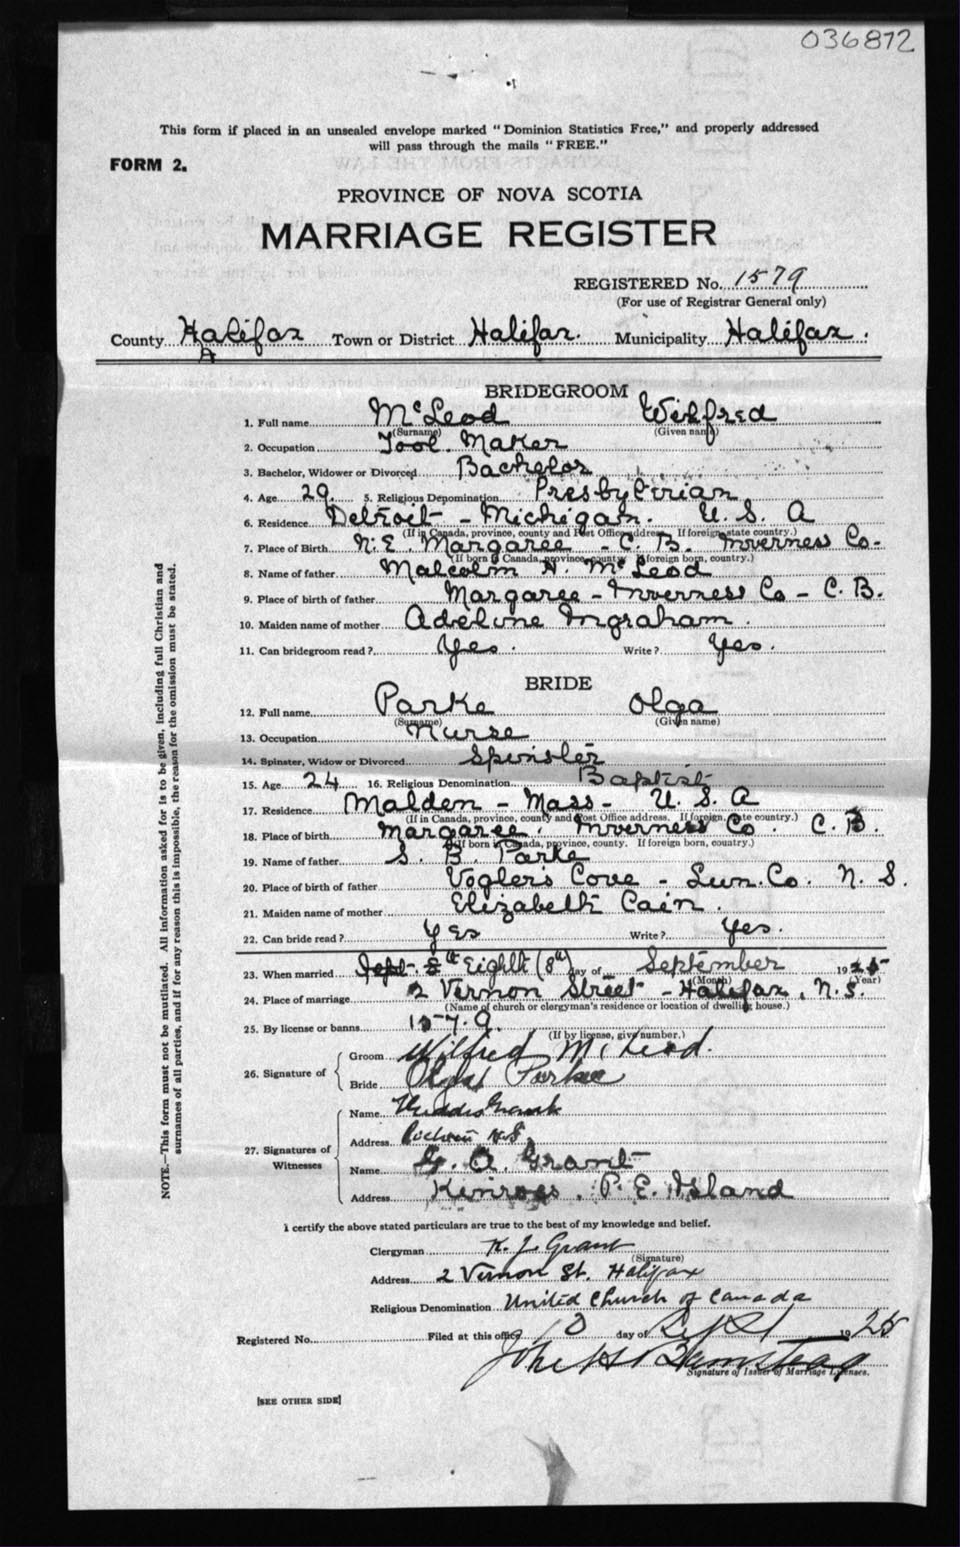 036872
This form if placed in an unsealed envelope marked "Dominion Statistics Free," and properly addressed
will pass through the mails "FREE."
FORM 2.
PROVINCE OF NOVA SCOTIA
MARRIAGE REGISTER
REGISTERED No. 1579
(For use of Registrar General only)
County Halifax Town or District Halifax. Municipality Halifax.
BRIDEGROOM
1. Full name McLeod Wilfred
(Surname) (Given name)
2. Occupation Tool Maker
3. Bachelor, Widower or Divorced Bachelor
4. Age 29 5. Religious Denomination Presbyterian
6. Residence Detroit - Michigan. U. S. A
(If in Canada, province, county and Post Office address. If foreign, state country.)
7. Place of Birth N. E. Margaree - C. B. Inverness Co-
(If born in Canada, province, county. If foreign born, country.)
8. Name of father Malcolm H. McLeod
9. Place of birth of father Margaree - Inverness Co - C. B.
10. Maiden name of mother Adeline Ingraham.
11. Can bridegroom read? Yes. Write? Yes.
BRIDE
12. Full name Parke Olga
(Surname) (Given name)
13. Occupation Nurse
14. Spinster, Widow or Divorced Spinster
15. Age 24 16. Religious Denomination Baptist
17. Residence Malden - Mass - U. S. A
(If in Canada, province, county and Post Office address. If foreign, state country.)
18. Place of birth Margaree. Inverness Co. C. B.
(If born in Canada, province, county. If foreign born, country.)
19. Name of father S. B. Parke
20. Place of birth of father Vogler's Cove - Lun. Co. N. S.
21. Maiden name of mother Elizabeth Cain.
22. Can bride read? Yes Write? Yes.
23. When married Sept. 8th Eighth (8th) day of September 1925
(Month) (Year)
24. Place of marriage 2 Vernon Street - Halifax, N. S.
(Name of church or clergyman's residence or location of dwelling house.)
25. By license or banns 1579.
(If by license, give number.)
26. Signature of
Groom Wilfred McLeod.
Bride Olga Parke
27. Signatures of Witnesses
Name Grant
Address N.S.
Name G. A. Grant
Address Kinross, P. E. Island
I certify the above stated particulars are true to the best of my knowledge and belief.
Clergyman K. J. Grant
(Signature)
Address 2 Vernon St. Halifax
Religious Denomination United Church of Canada
Registered No. Filed at this office 10 day of Sept 1925
John H Barnstead
Signature of Issuer of Marriage Licenses.
[SEE OTHER SIDE]
NOTE.—This form must not be mutilated. All information asked for is to be given, including full Christian and
surnames of all parties, and if for any reason this is impossible, the reason for the omission must be stated.